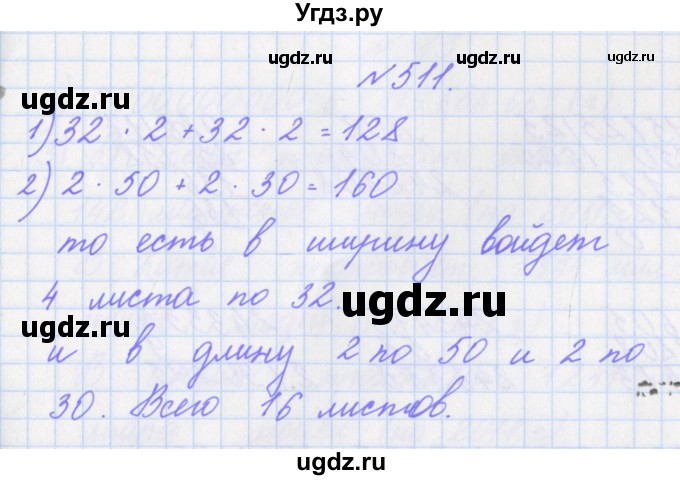 Угдз.ру
ugdz.ru ugdz.ru
№511.
ugdz.ru
1) 32 · 2 + 32 · 2 = 128
2) 2 · 50 + 2 · 30 = 160
ugdz.ru ugdz.ru
то есть в ширину войдет
4 листа по 32.
ugdz.ru
ugdz.ru
и в длину 2 по 50 и 2 по
ugdz.ru
30. Всего 16 листов.
ugdz.ru ugdz.ru
ugdz.ru